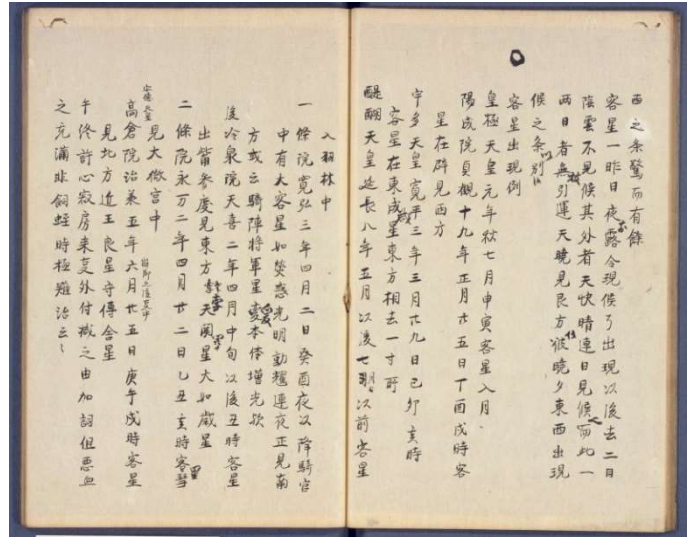 西之条驚而有餘
客星一昨日夜露今現候了出現以後去二日
陰雲不見候其外者天快晴連日見候而此一
両日者無引運天曉見艮方彼曉夕東西出現
候之条別
客星出現例
皇極天皇元年秋七月甲寅客星入月
陽成院貞觀十九年正月廿五日丁酉戌時客
星在辟見西方
宇多天皇寛平三年三月廿九日己卯亥時
客星在東咸星東方相去一寸所
醍醐天皇延長八年五月以後七月以前客星
入羽林中
一條院寛弘三年四月二日癸酉夜以降騎官
中有大客星如熒惑光明動耀連夜正見南
方或云騎陣将軍星變本体増光歟
後冷泉院天喜二年四月中旬以後丑時客星
出觜參度見東方孛天関星大如歳星
二條院永万二年四月廿二日乙丑亥時客彗
安徳天皇
見大微宮中
高倉院治兼五年六月廿五日庚午戌時客星
見北方近王良星守傳舎星
午終許心寂房来
之充満非飼蛭時極難治云々